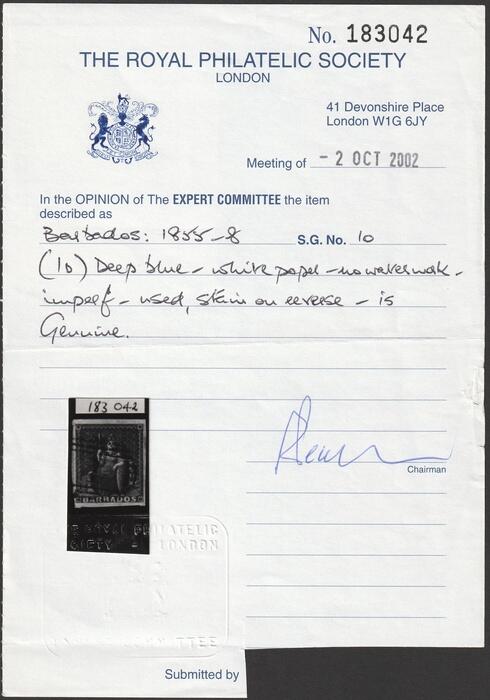 No. 183042
THE ROYAL PHILATELIC SOCIETY
LONDON
41 Devonshire Place
London W1G 6JY
Meeting of - 2 OCT 2002
In the OPINION of The EXPERT COMMITTEE the item
described as
Barbados: 1855-8 S.G. No. 10
(1d) Deep blue - white paper - no watermark -
imperf - used, stain on reverse - is
Genuine.
183 042
BARBADOS
Chairman
ROYAL PHILATELIC
SOCIETY LONDON
TTEE
Submitted by